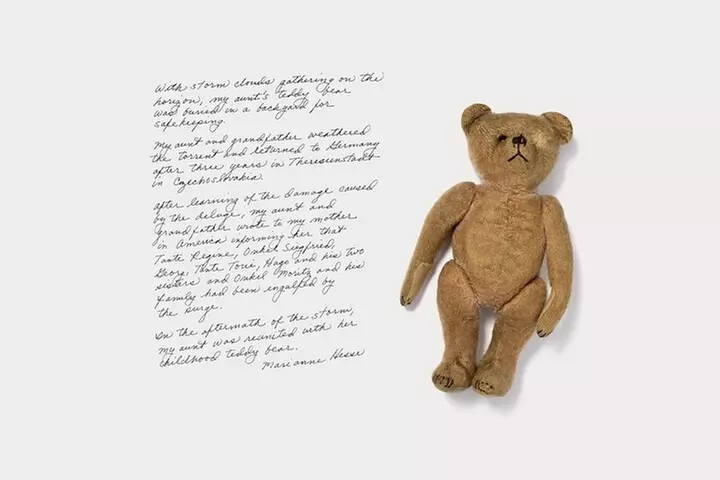 With storm clouds gathering on the
horizon, my aunt's teddy bear
was buried in a backyard for
safekeeping.
My aunt and grandfather weathered
the torrent and returned to Germany
after three years in Theresienstadt
in Czechoslovakia.
After learning of the damage caused
by the deluge, my aunt and
grandfather wrote to my mother
in America informing her that
Tante Regine, Onkel Siegfried,
Georg, Tante Toni, Hugo and his two
sisters and Onkel Moritz and his
family had been engulfed by
the surge.
In the aftermath of the storm,
my aunt was reunited with her
childhood teddy bear.
Marianne Hesse